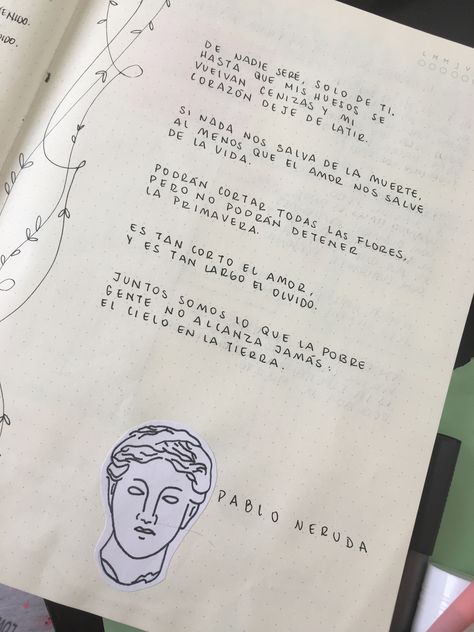 ENIDO.
DIDO.
L M M J V
DE NADIE SERÉ, SOLO DE TI.
HASTA QUE MIS HUESOS SE
VUELVAN CENIZAS Y MI
CORAZÓN DEJE DE LATIR.
SI NADA NOS SALVA DE LA MUERTE,
AL MENOS QUE EL AMOR NOS SALVE
DE LA VIDA.
PODRÁN CORTAR TODAS LAS FLORES,
PERO NO PODRÁN DETENER
LA PRIMAVERA.
ES TAN CORTO EL AMOR,
Y ES TAN LARGO EL OLVIDO.
JUNTOS SOMOS LO QUE LA POBRE
GENTE NO ALCANZA JAMÁS:
EL CIELO EN LA TIERRA.
PABLO NERUDA